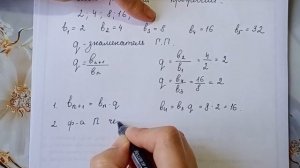 2, 4, 8, 16,
b₁ = 2 b₂ = 4 b₃ = 8 b₄ = 16 b₅ = 32
q - знаменатель Г.П.
q = bₙ₊₁ / bₙ
q = b₂ / b₁ = 4 / 2 = 2
q = b₄ / b₃ = 16 / 8 = 2
1. bₙ₊₁ = bₙ · q b₄ = b₃ q = 8 · 2 = 16
2. ф-а П